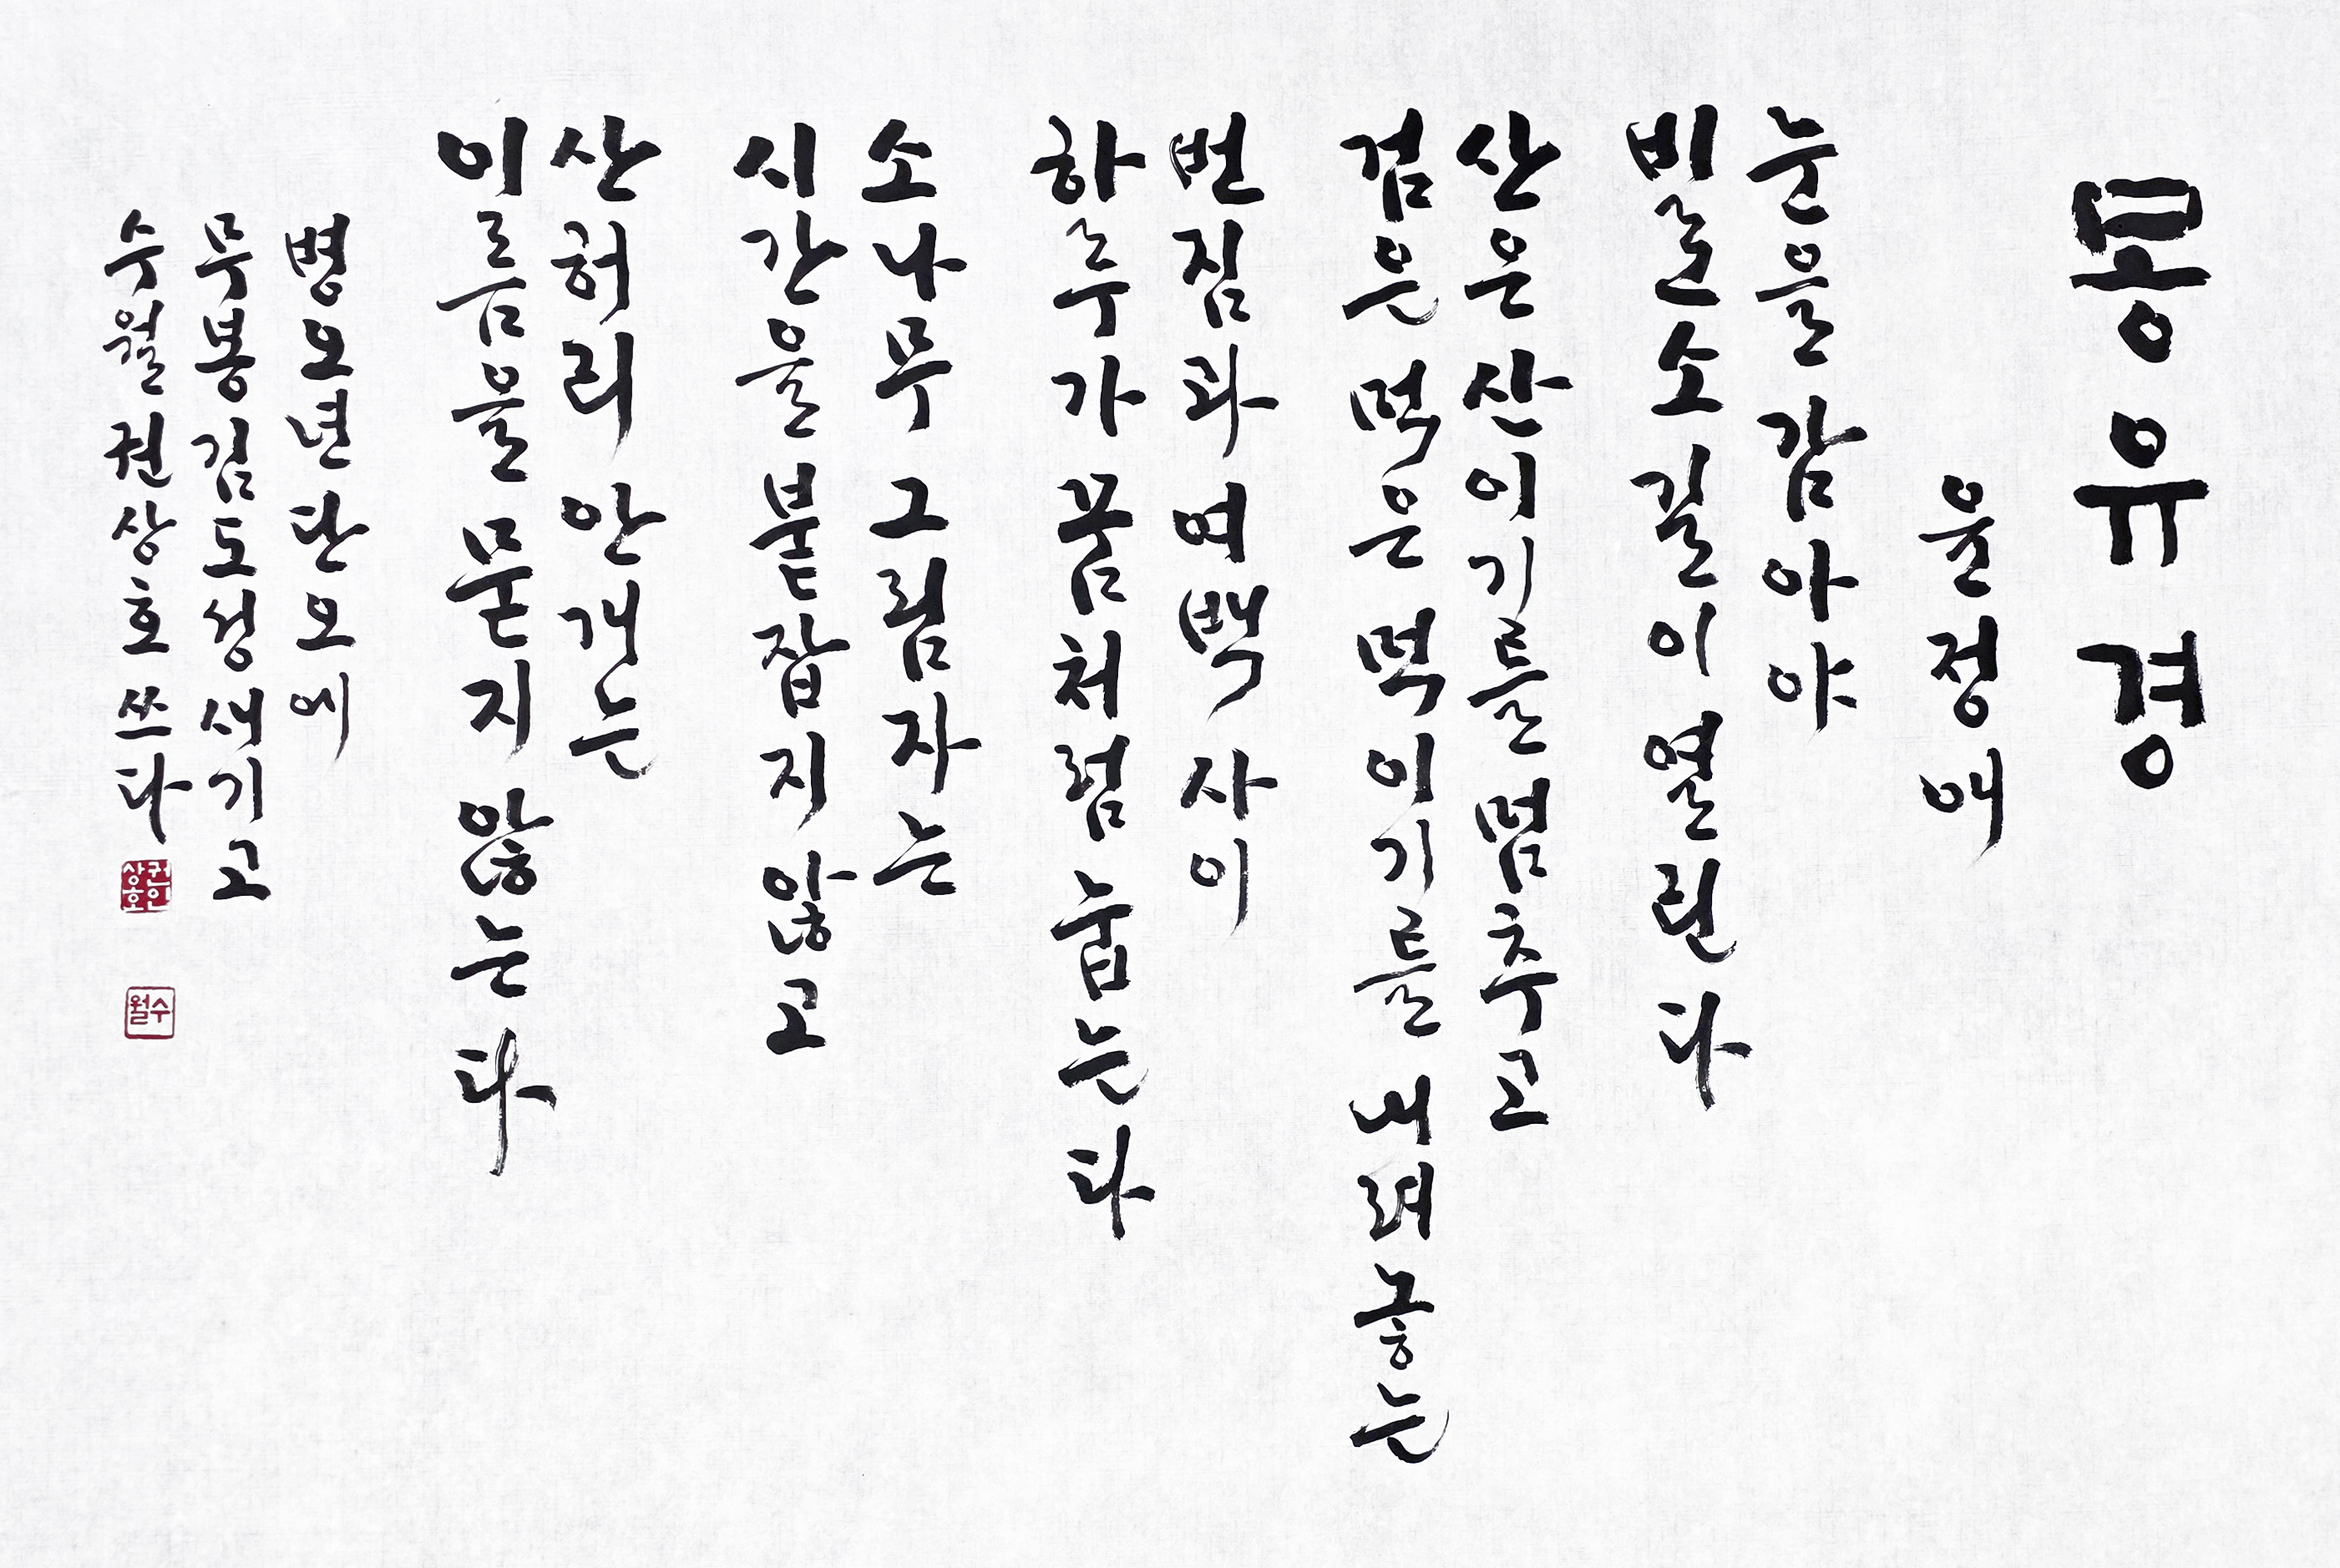 몽유경
윤정애
눈을 감아야
비로소 길이 열린다
산은 산이기를 멈추고
검은 먹은 먹이기를 내려놓는
번짐과 여백 사이
하루가 꿈처럼 눕는다
소나무 그림자는
시간을 붙잡지 않고
산허리 안개는
이름을 묻지 않는다
병오년 단오에
무봉 김도성 새기고
수월 권상호 쓰다
권상호인
수월